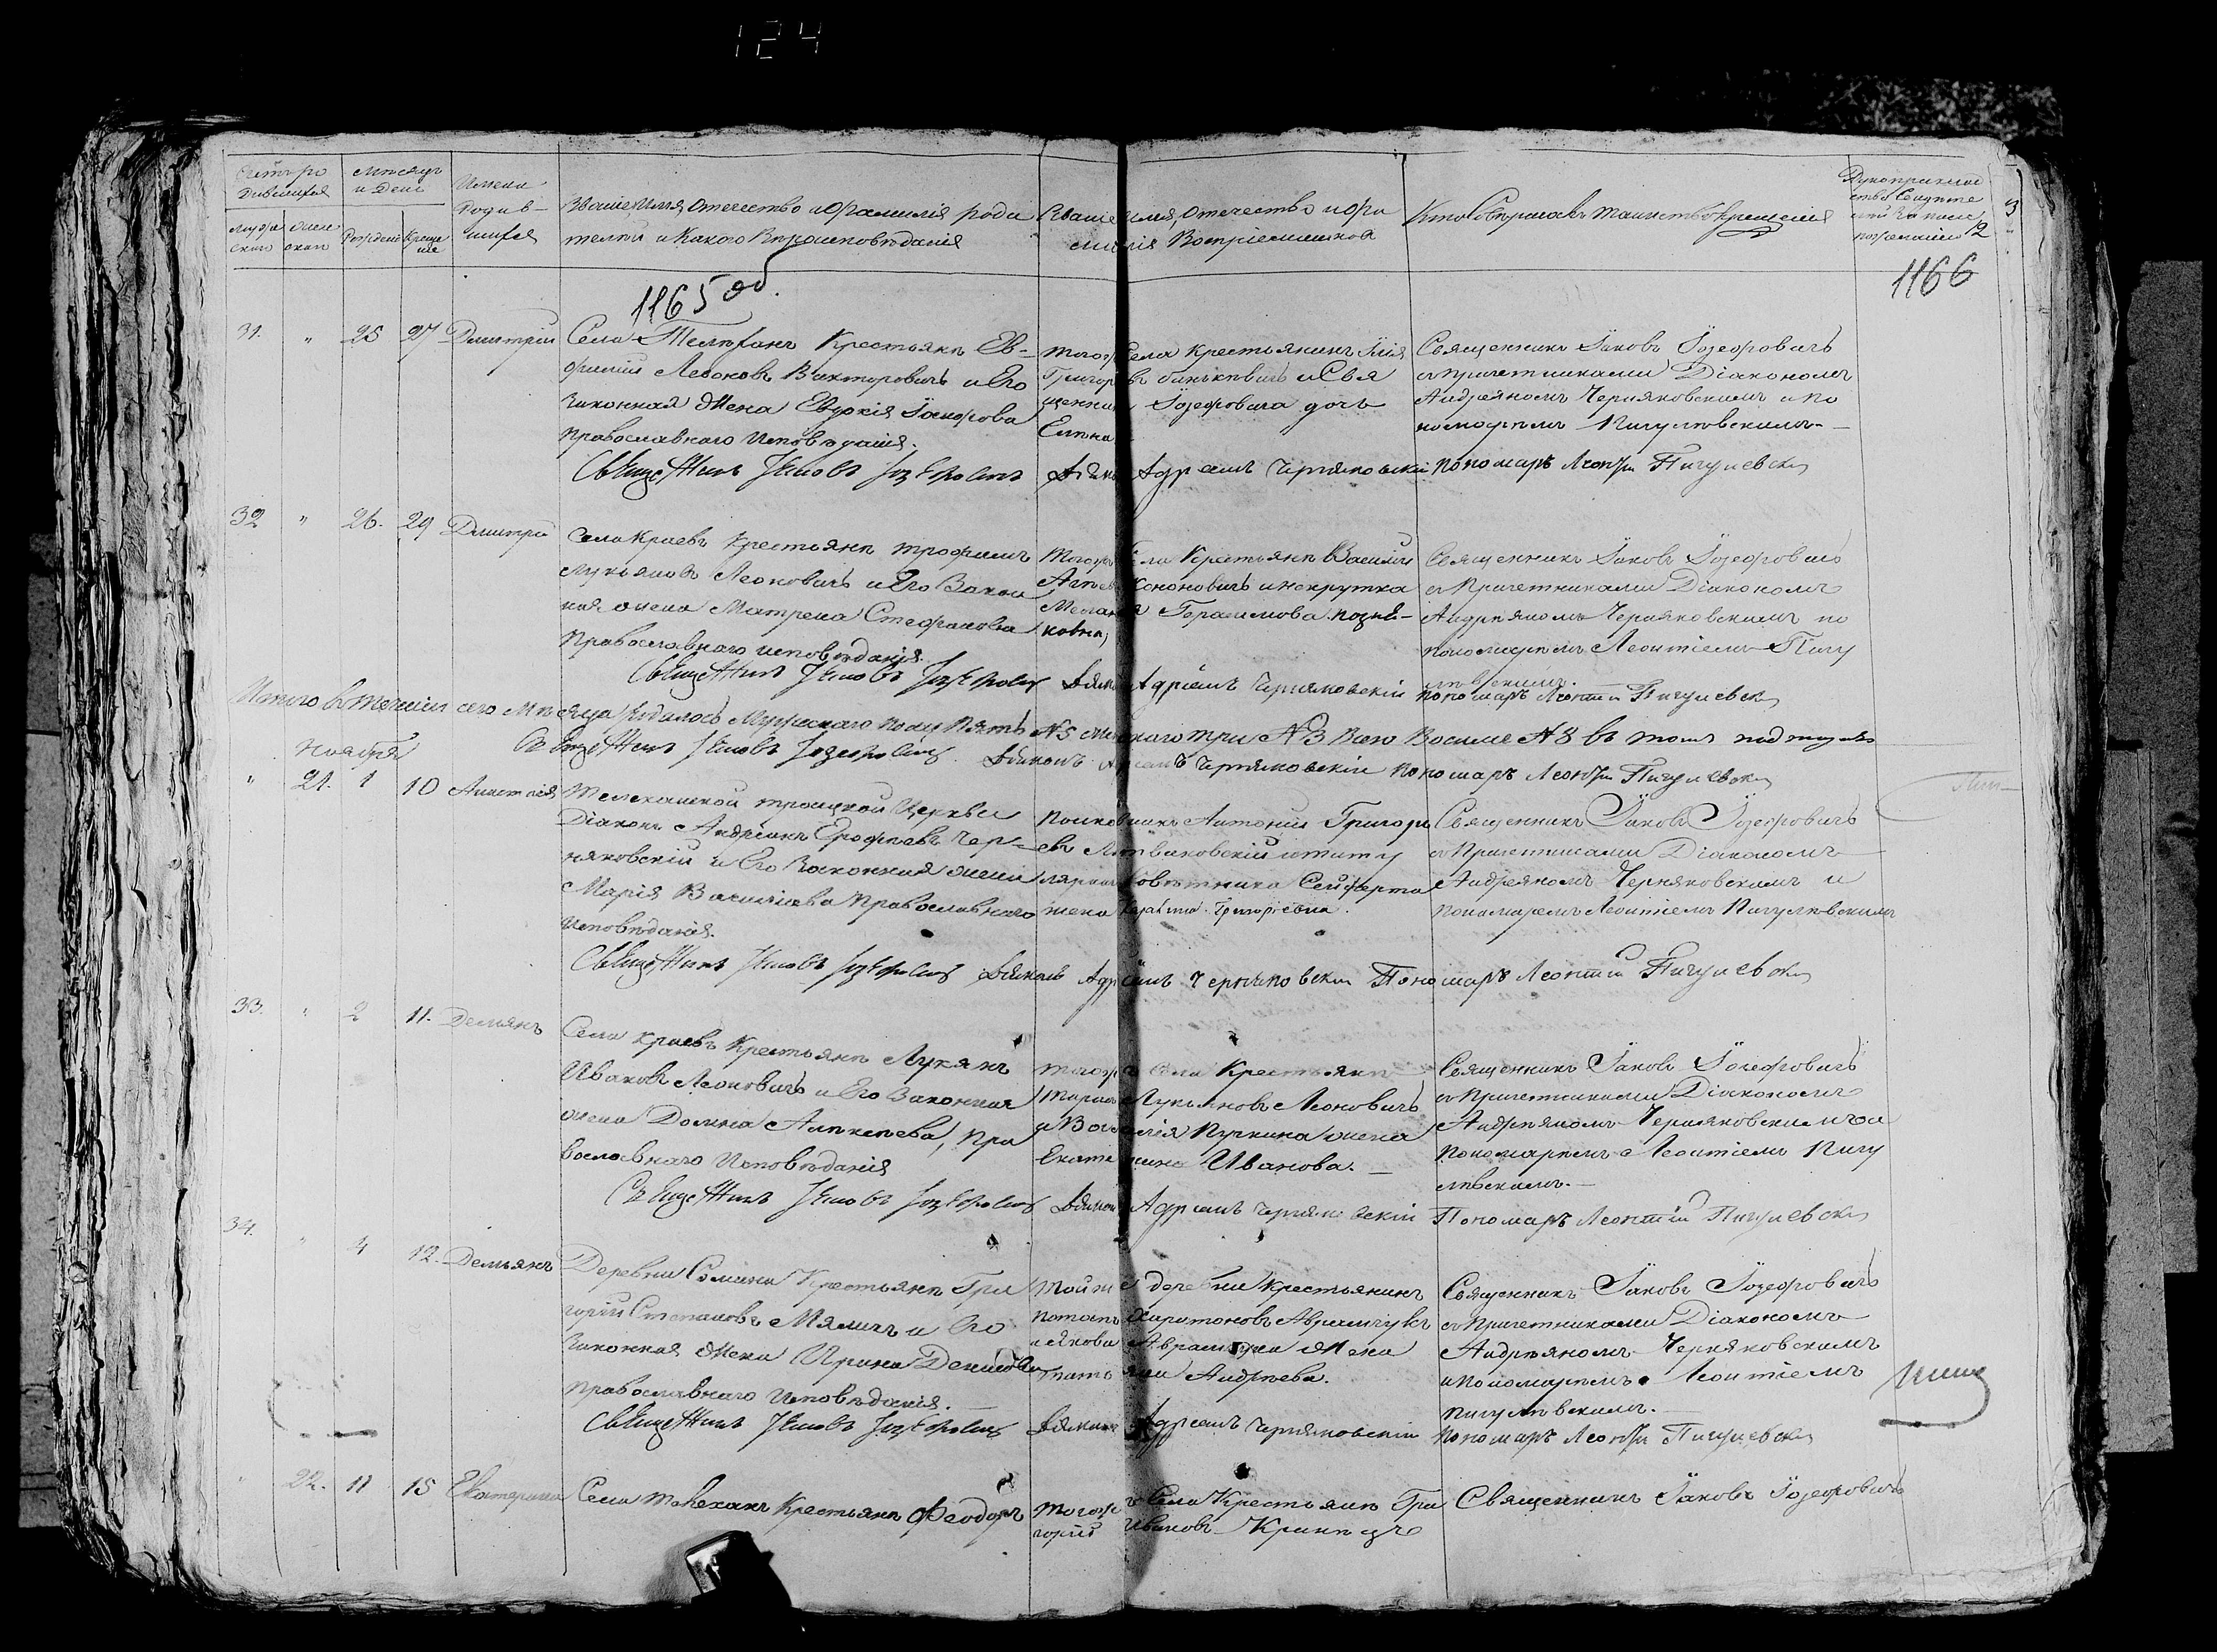 124
Счетъ ро
дившихся
Мѣсяцъ
и День
Имена
Родив-
шихся
Званіе Имя, Отечество и Фамилія роди
телей и Какого Вѣроисповѣданія
Званіе имя, Отечество и фа
милія Воспріемниковъ
Кто Совершалъ таинство Крещенія
Рукоприклад
ство Свидѣте
лей
12
3
1165 об.
1166
31. " 25 27 Дмитрій
Села Телѣхань Крестьянъ Ев-
фимій Леоновъ Викторовичъ и Его
Законная Жена Евдокія
Православнаго Исповѣданія.
Того же Села Крестьянинъ Илія
Григорьевъ и Свя
щенника Іозефовича дочь
Елена
Священникъ Іаковъ Іозефовичъ
съ причетниками Діакономъ
Андреяномъ Черняковскимъ и по
номаремъ Пигулевскимъ
Священникъ Іаковъ Іозефовичъ Діяконъ Адріанъ Черняковскій пономаръ Леонтій Пигулевскій
32 " 26. 29 Дмитрій
Села Краевъ Крестьянъ Трофимъ
Лукьяновъ Леоновичъ и Его Закон
ная жена Матрена Стефанова
Православнаго исповѣданія.
Того же Села Крестьянъ Василій
Кононовичъ и некрутка
Мелания Герасимова
Священникъ Іаковъ Іозефовичъ
съ Причетниками Діакономъ
Андреяномъ Черняковскимъ по
пономаремъ Леонтіемъ Пигу
левскимъ.
Священникъ Іаковъ Іозефовичъ Діяконъ Адріанъ Черняковскій пономаръ Леонтій Пигулевскій
Итого въ теченіи сего Мѣсяца родилось Мужескаго полу Пять №5 женскаго три №3 Всего Восемь №8 въ томъ подписуемся
Священникъ Іаковъ Іозефовичъ. Діяконъ Адріанъ Черняковскій пономаръ Леонтій Пигулевскій
Ноября
" 21. 1 10 Анастасія
Телеханской троицкой Церквы
Діаконъ Андріянъ Ерофѣевъ Чер-
няковскій и Его Законная жена
Марія Васильева Православнаго
Исповѣданія.
Полковникъ Антоній Григорь
евъ и титу
лярнаго Совѣтника
жена Григорьевна.
Священникъ Іаковъ Іозефовичъ
съ Причетниками Діакономъ
Андреяномъ Черняковскимъ и
пономаремъ Леонтіемъ Пигулевскимъ
Священникъ Іаковъ Іозефовичъ Діяконъ Адріанъ Черняковскій Пономаръ Леонтій Пигулевскій
33. " 2 11. Демьянъ
Села Краевъ Крестьянъ Лукянъ
Ивановъ Леоновичъ и Его Законная
жена Домна Алексеева, Пра
вославнаго Исповѣданія
Того же Села Крестьянъ
Лукьяновъ Леоновичъ
и жена
Екатерина Иванова.
Священникъ Іаковъ Іозефовичъ
съ Причетниками Діакономъ
Андреяномъ Черняковскимъ и
пономаремъ Леонтіемъ Пигу
левскимъ.
Священникъ Іаковъ Іозефовичъ Діяконъ Адріанъ Черняковскій Пономаръ Леонтій Пигулевскій
34. " 4 12. Демьянъ
Деревни Сомина Крестьянъ Гри
горій Степановъ и Его
Законная Жена Ирина Денисова
Православнаго Исповѣданія.
Той же деревни Крестьянинъ
Потапъ Харитоновъ Аврамчукъ
и Якова Аврамчука Жена
Андреева.
Священникъ Іаковъ Іозефовичъ
съ Причетниками Діакономъ
Андреяномъ Черняковскимъ
и Пономаремъ Леонтіемъ
Пигулевскимъ.
Священникъ Іаковъ Іозефовичъ Діяконъ Адріанъ Черняковскій пономаръ Леонтій Пигулевскій
" 22. 11 15 Екатерина
Села Телеханъ Крестьянъ Феодоръ
Того же Села Крестьянъ Гри
горій Ивановъ
Священникъ Іаковъ Іозефовичъ